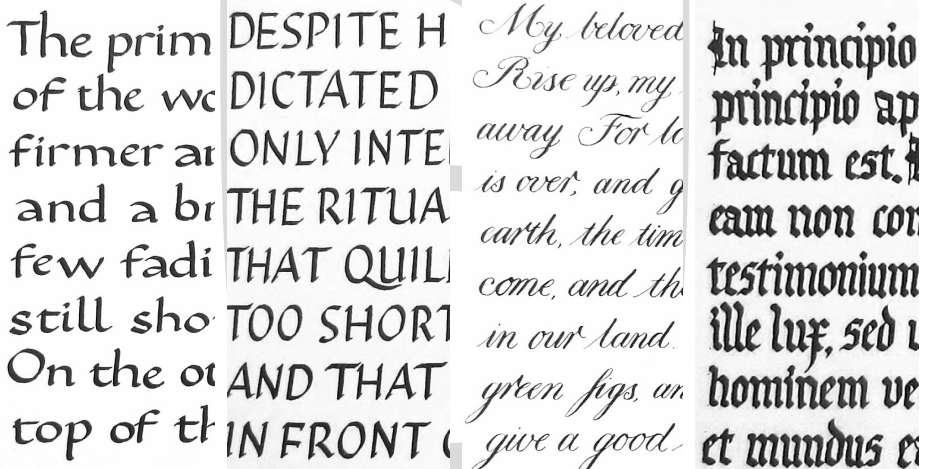 The prim
of the wo
firmer ar
and a br
few fadi
still sho
On the ot
top of th
DESPITE H
DICTATED
ONLY INTE
THE RITUA
THAT QUIL
TOO SHORT
AND THAT
IN FRONT
My beloved
Rise up, my
away For lo
is over, and g
earth, the tim
come, and the
in our land.
green figs, an
give a good
In principio
principio ap
factum est.
eam non con
testimonium
ille lux, sed
hominem ve
et mundus e